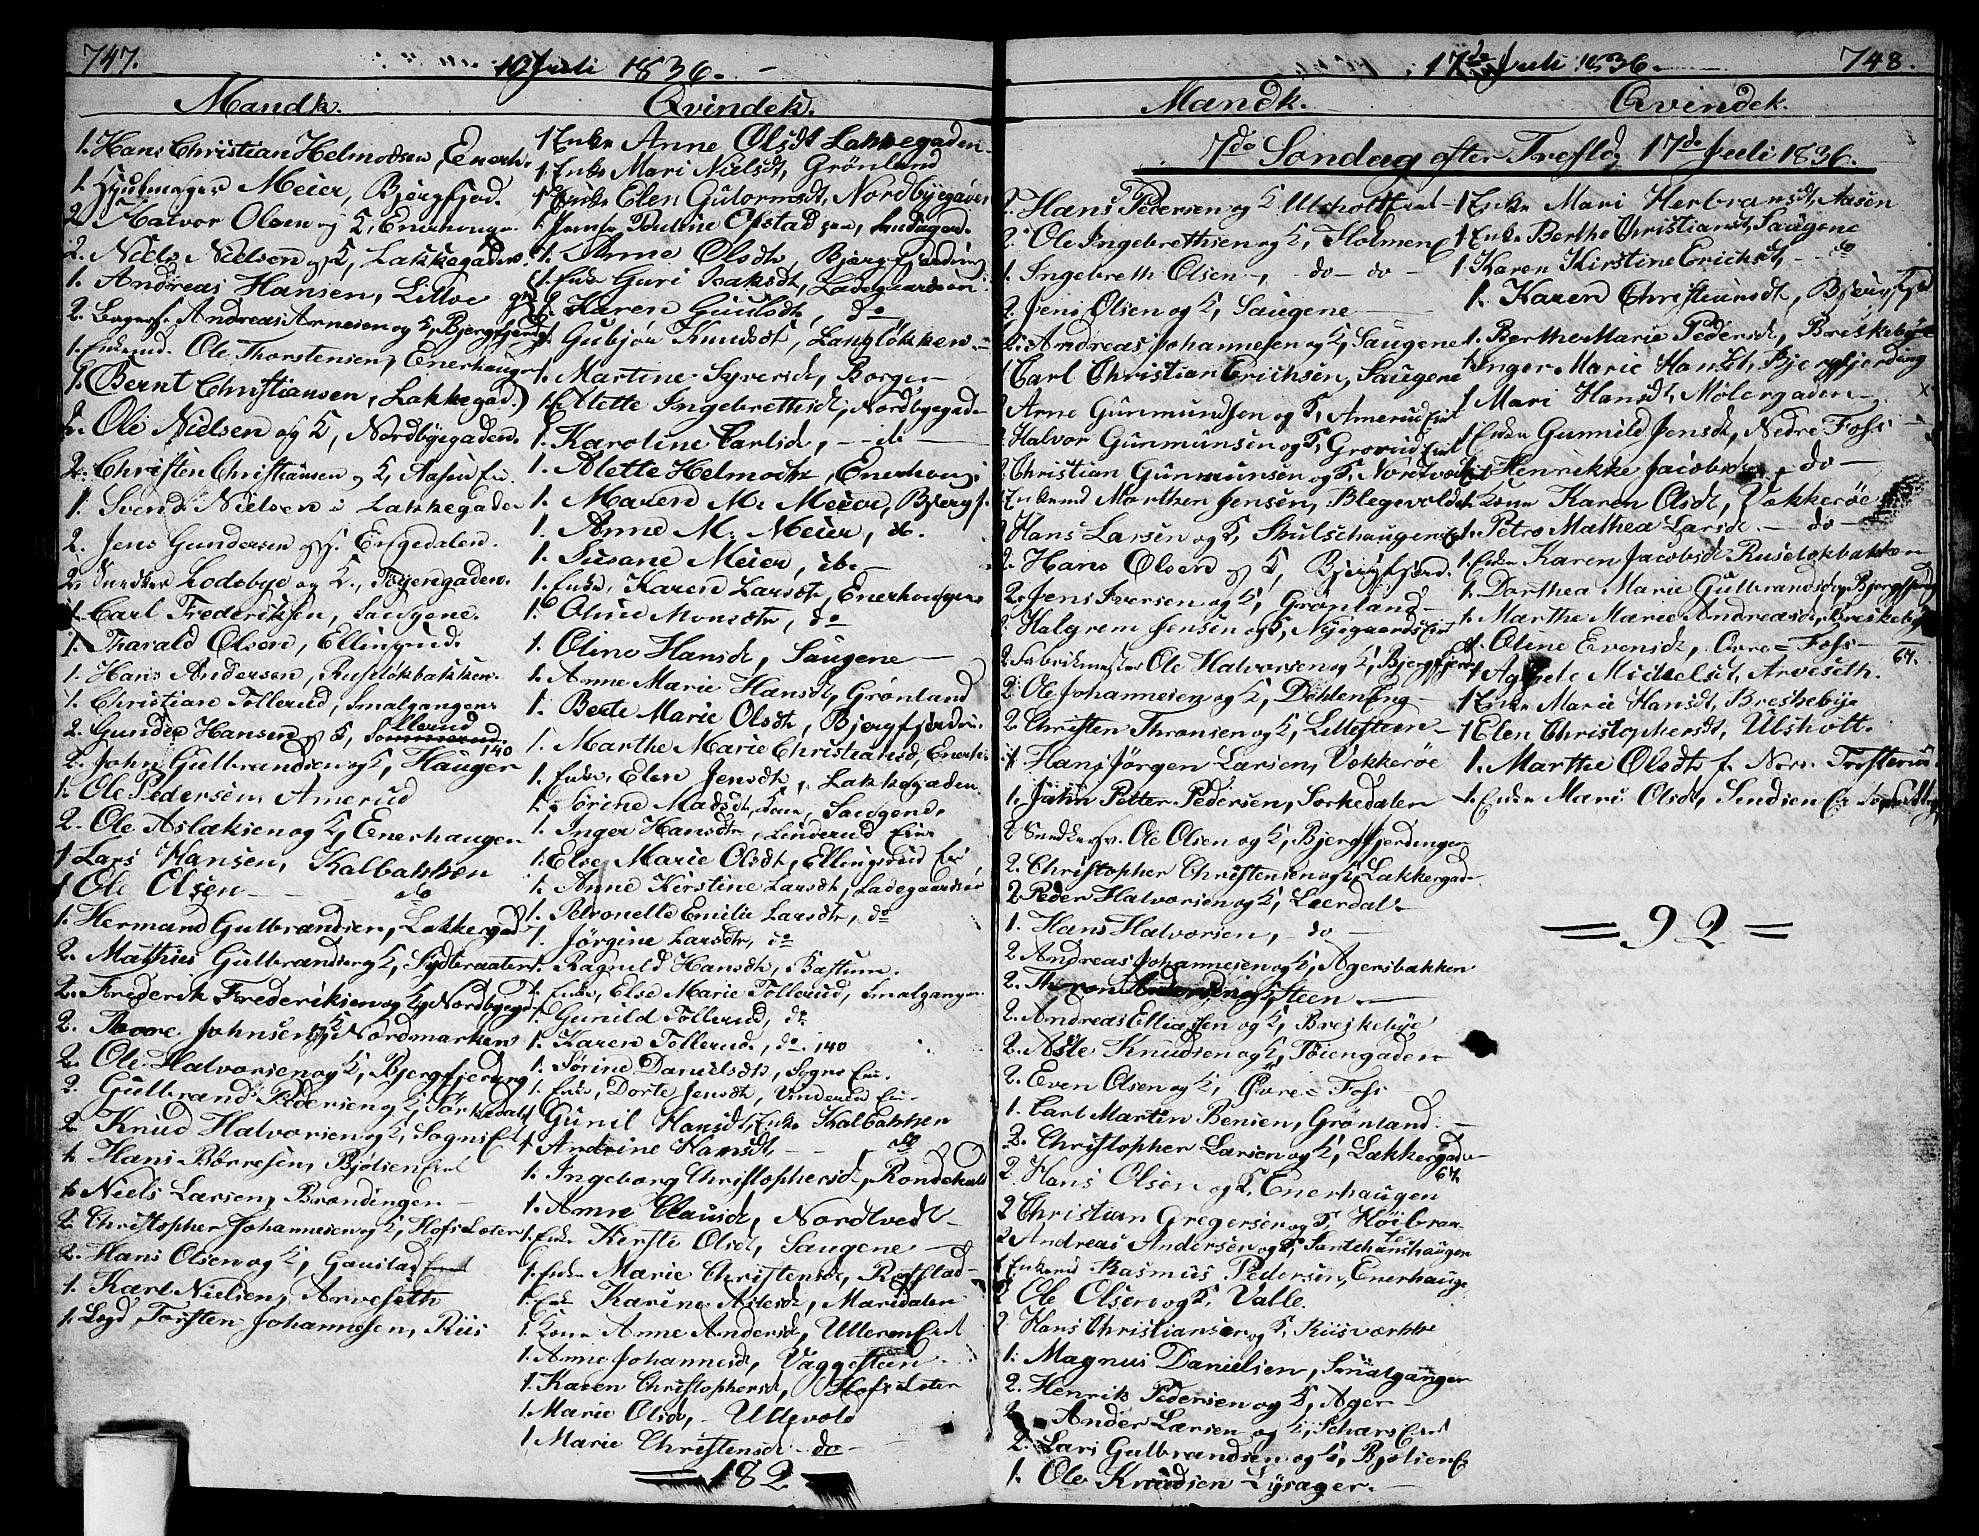 747.
10 Juli 1836.
Mandk.
Qvindek.
1. Hans Christian Helmodsen, Enerh.
1. Hjulmager Meier, Bjergfjed.
2. Halvor Olsen og K, Enerhougen
2. Niels Nielsen og K, Lakkegaden.
1. Andreas Hansen, Lilloe
2. Andreas Arnesen og K, Bjergfjerdg
1. Enkemd. Ole Thorstensen, Enerhaugen
1. Bernt Christiansen, Lakkegad.)
2. Ole Nielsen og K, Nordbyegaden.
2. Christen Christiansen og K, Aasen Ei.
1. Svend Nielsen i Lakkegaden
2. Jens Gundersen og K. Engedalen.
2. Snedker Lodebye og K., Tøyengaden.
1. Carl Frederiksen, Saugene.
1. Tharald Olsen, Ellingsrud.
1. Hans Andersen, Ruseløkbakken.
1. Christian Tollerud, Smalgangen
2. Gunder Hansen og K, Tollerud
140
2. John Gulbrandsen og K, Hauger
1. Ole Pedersen, Amerud
2. Ole Aslaksen og K, Enerhaugen
1 Lars Hansen, Kalbakken
1 Ole Olsen — do
1. Hermand Gulbrandsen, Lakkegad
2. Mathies Gulbrandsen og K, Sydbraaten
2. Frederik Frederiksen og K, Nordbyegd
2. Johnsen og K, Nordmarken
2. Ole Halvorsen og K, Bjergfjerding
2. Gulbrand Pedersen og K, Sørkedal
2. Knud Halvorsen og K, Sogns Ei
1. Hans Børresen, Bjølsen Eiet
1. Niels Larsen, Brændingen
2. Christopher Johannesen og K, Hofs Løter
2. Hans Olsen og K, Gaustad
1. Karl Nielsen, Arveseth
1. Legd Torsten Johannesen, Riis
1 Enke Anne Olsdt Lakkegaden
1. Enke Mari Nielsdt, Grønland
1 Enke Elen Gutormsdt, Nordbyegaden
1. Jomfr Pouline Opstad
1. Anne Olsdt, Bjergfjerding
1. Enke Guri Isaksdt, Ladegaardsøen
1. Karen Guulsdt, do
1. Gubjør Knudsdt, Langløkken
1. Martine Syversdt, Borgen
1. Alette Ingebrethsdt, Nordbyegade
1. Karoline Carlsdt, — do —
1. Alette Helmodsdt, Enerhoug
1. Maren M. Meier, Bjergf.
1. Anne M. Meier, do.
1. Susane Meier, do.
1. Enke, Karen Larsdt, Enerhougen
1. Oline Monsdt, do
1. Oline Hansdt, Saugene
1. Anne Marie Hansdt, Grønland
1. Berte Marie Olsdt, Bjergfjerdin.
1. Marthe Marie Christiansd, Enerh.
1. Enke, Elen Jensdt, Lakkegaden.
1. Sørine Madsdt, Saugene.
1. Inger Hansdt, Linderud Eie
1. Else Marie Olsdt, Ellingsrud Ei
1. Anne Kirstine Larsdt, Ladegaardsøe
1. Petronelle Emilie Larsdt, do
1. Jörgine Larsdt, do
1. Ragnild Hansdt, Bastum.
1. Enke, Else Marie Tollerud, Smalgangen.
1. Gunild Tollerud, do
1. Karen Tollerud, do. 140
1. Sørine Danielsdt, Sogns Eie.
1. Enke, Dorte Jensdt, Vinderud Eie.
1 Gunil Hansdt, Enke Kalbakken
1 Andrine Hansdt — do
1. Ingeborg Christophersd, Rondekull
1. Anne Clausdt, Nordtvedt
1. Enke Kersti Olsdt, Saugene
1. Enke Marie Christensdt, Rolstad
1. Enke Karine Aslesdt, Maridalen
1. Kone Anne Andersdt, Ulleren Eiet
1. Anne Johannesdt, Væggesteen
1. Karen Christophersdt, Hofs Løter
1. Marie Olsdt, Ullevold
1 Marie Christensdt — do —
= 182 =
17de Juli 1836.
748.
Mandk.
Qvindek.
7de Søndag efter Trefld, 17de Juli 1836.
2. Hans Pedersen og K, Ulsholt Eiet
2. Ole Ingebrethsen og K, Holmen E
1. Ingebreth Olsen, do do
2. Jens Olsen og K, Saugene
2. Andreas Johannesen og K, Saugene
1 Carl Christian Erichsen, Saugene
2 Arne Gunmundsen og K, Amerud Eiet
2 Halvor Gunmunsen og K, Grorud Eiet
2 Christian Gunmunsen og K. Nordtvedt
1 Enkemd Morthen Jensen, Blegevoldt
2 Hans Larsen og K, Skulschaugen Ei
2. Hans Olsen og K, Bjergfjerd.
2. Jens Iversen og K, Grønland
2. Halgrem Jensen og K, Nygaards Eiet
2. Fabrikmester Ole Halvorsen og K, Bjergfjerd
2. Ole Johannesen og K, Døhlen Eng
2. Christen Thronsen og K, Lillesteen
1 Hans Jörgen Larsen, Vækkerøe
1. John Petter Pedersen, Sørkedalen
2 Snedkersv. Ole Olsen og K, Bjergfjerdingen
2. Christopher Christensen og K, Lakkegad
2 Peder Halvorsen og K, Leerdal
1. Hans Halvorsen, do
2 Andreas Johannesen og K, Agersbakken
2. Andersen og K, Steen
2. Andreas Elliassen og K, Breskebye
2. Asle Knudsen og K, Tøiengaden
2. Even Olsen og K, Øvre Foss
1. Carl Martin Bensen, Grønland.
2. Christopher Larsen og K, Lakkegade
67
2. Hans Olsen og K. Enerhaugen
2 Christian Gregersen og K, Høibraa
2 Andreas Andersen og K, Santehanshaugen
1 Enkemd Rasmus Pedersen, Enerhaugen
2 Ole Olsen og K. Valle.
2 Hans Christiansen og K. Riisværkke
1. Magnus Danielsen, Smalgangen
2. Henrik Pedersen og K, Ager
2 Ander Larsen og K, Schars Eiet
2. Lars Gulbrandsen og K, Bjølsen E
1. Ole Knudsen Lysager.
1 Enke Mari Herbransdt, Aasen
1 Enke Berthe Christiansdt, Saugene
1 Karen Kirstine Erichsdt, do
1. Karen Christiansdt, Bjergfjd
1. Berthe Marie Pedersdt, Breskebye
1 Inger Marie Hansdt, Bjergfjerding
1 Mari Hansdt, Møllergaden
1 Enke Gunnild Jensdt, Nedre Foss
1 Henrikke Jacobsdt, do
1 Kone Karen Olsdt, Vækkerøe
1. Petra Mathea Larsdt — do —
1. Enke Karen Jacobsdt Ruseløkbakken
1. Dorthea Marie Gulbrandsdt, Bjergfjerd
1. Marthe Marie Andreasdt, Breskebye
1. Oline Evensdt, Øvre Foss
67.
1 Agnete Mickelsdt, Arveseth.
1 Enke Marie Hansdt, Breskebye
1 Elen Christophersdt, Ulsholt.
1. Marthe Olsdt f. Nors. Trosterud
1. Enke Mari Olsdt, Sindsen Ei
= 92 =